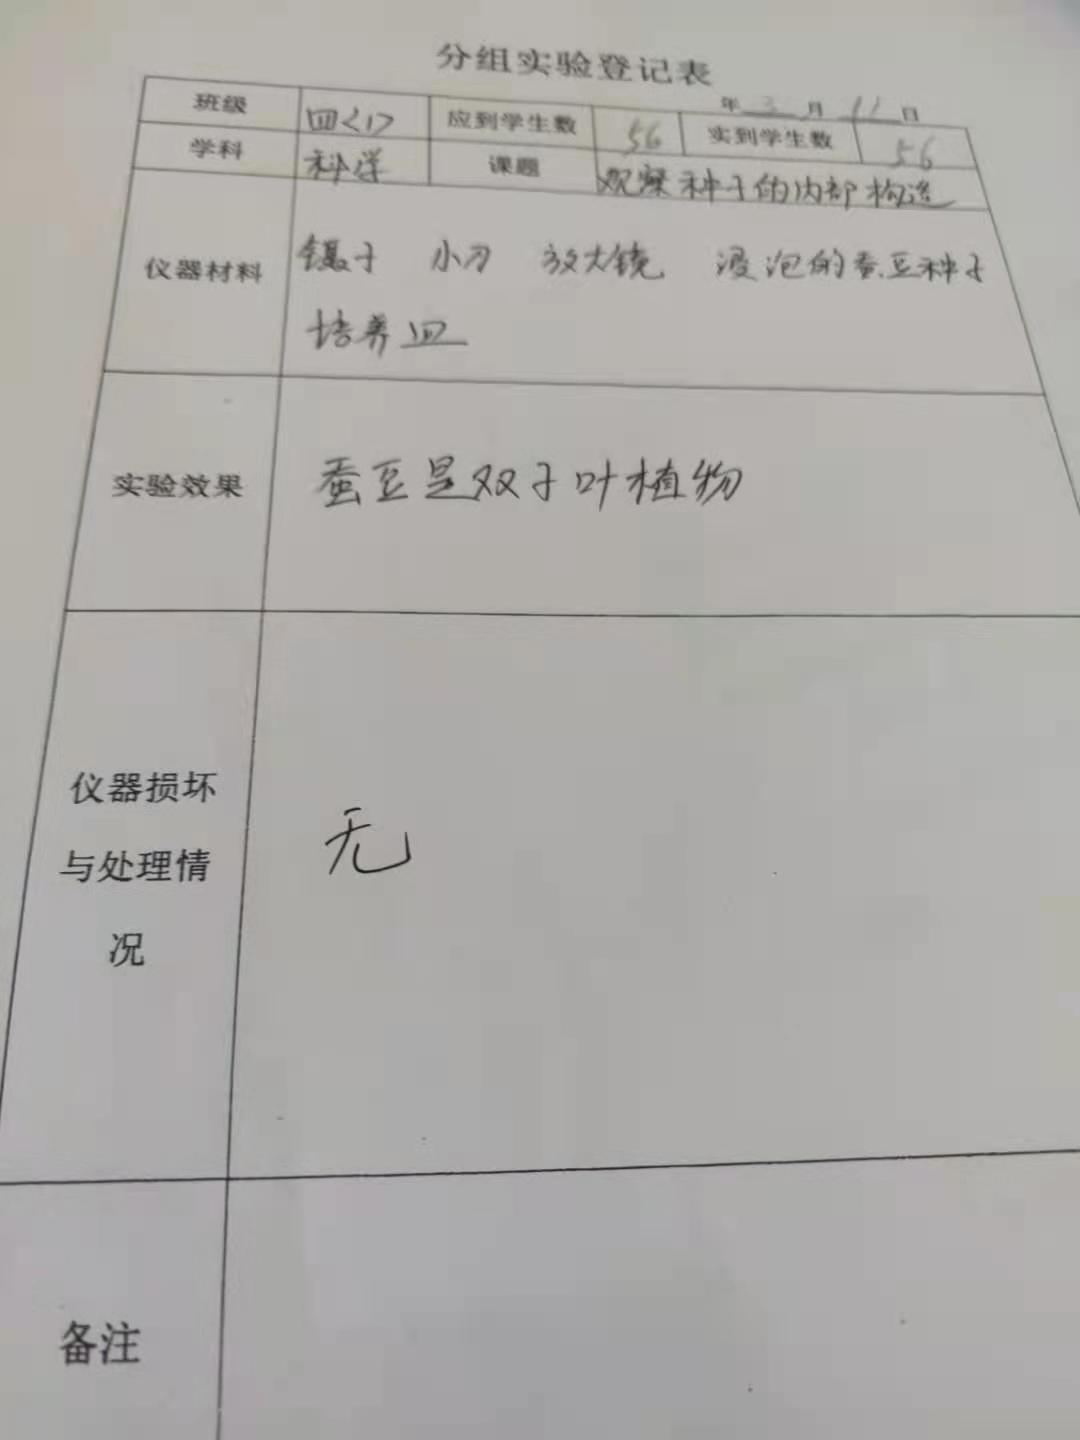 分组实验登记表
年 3 月 11 日
班级 四<1> 应到学生数 56 实到学生数 56
学科 科学 课题 观察种子的内部构造
仪器材料 镊子 小刀 放大镜 浸泡的蚕豆种子
培养皿
实验效果 蚕豆是双子叶植物
仪器损坏
与处理情
况
无
备注